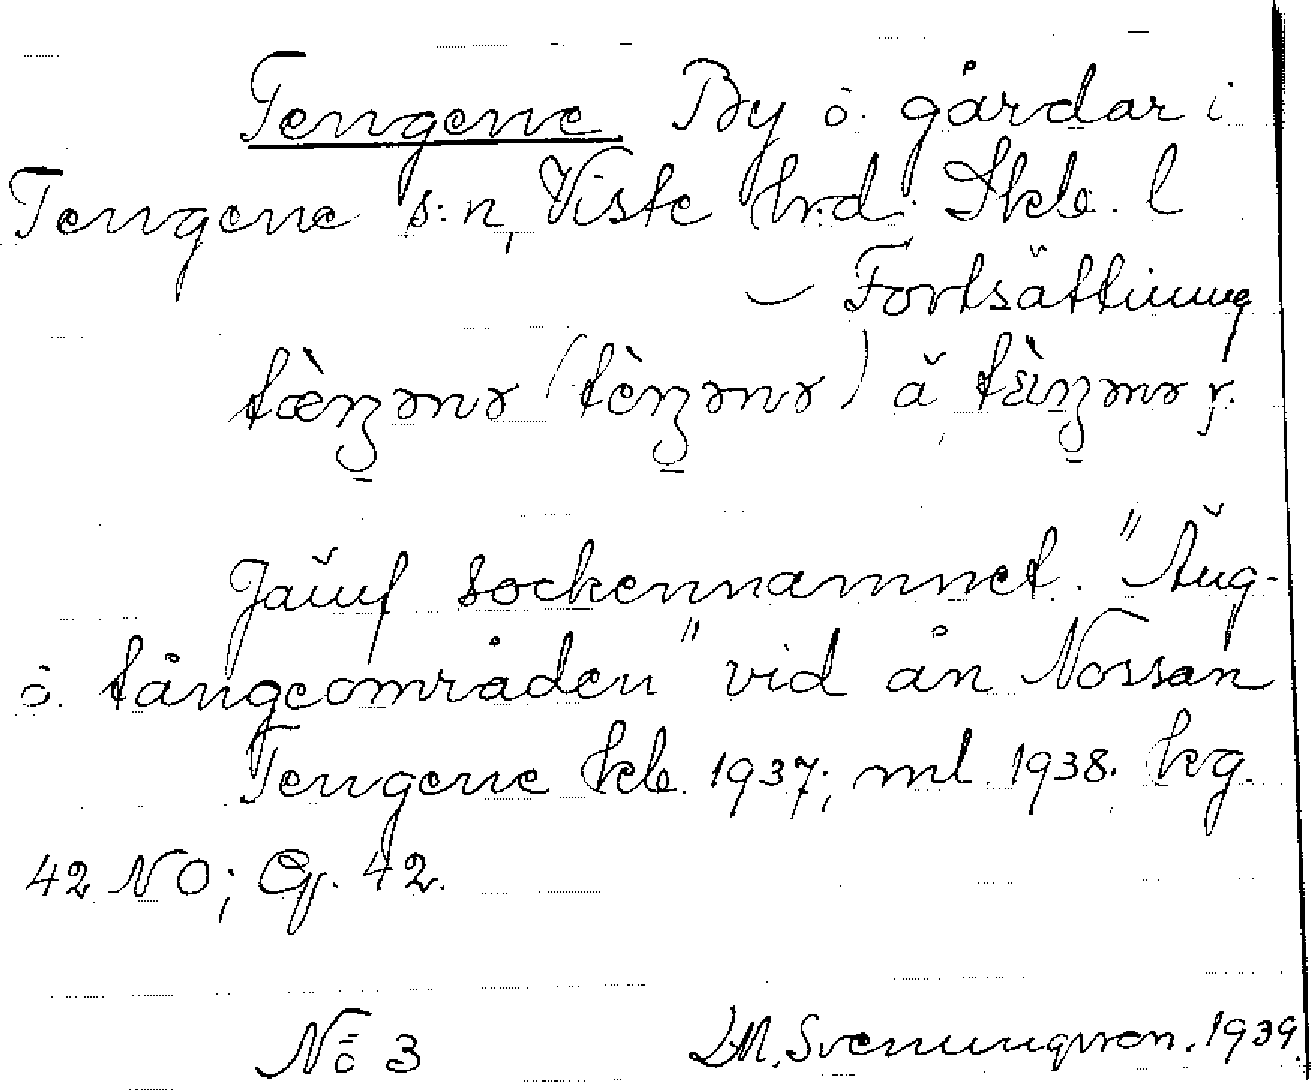 Tengene By o. gårdar i
Tengene s:n, Viste hrd. Skb. l
– Fortsättning
Jämf sockennamnet. "Äng-
o. tångeområden" vid ån Nossan
Tengene skb. 1937; ml 1938. kg.
42 NO; Gf. 42.
No 3 Svenungsson. 1939